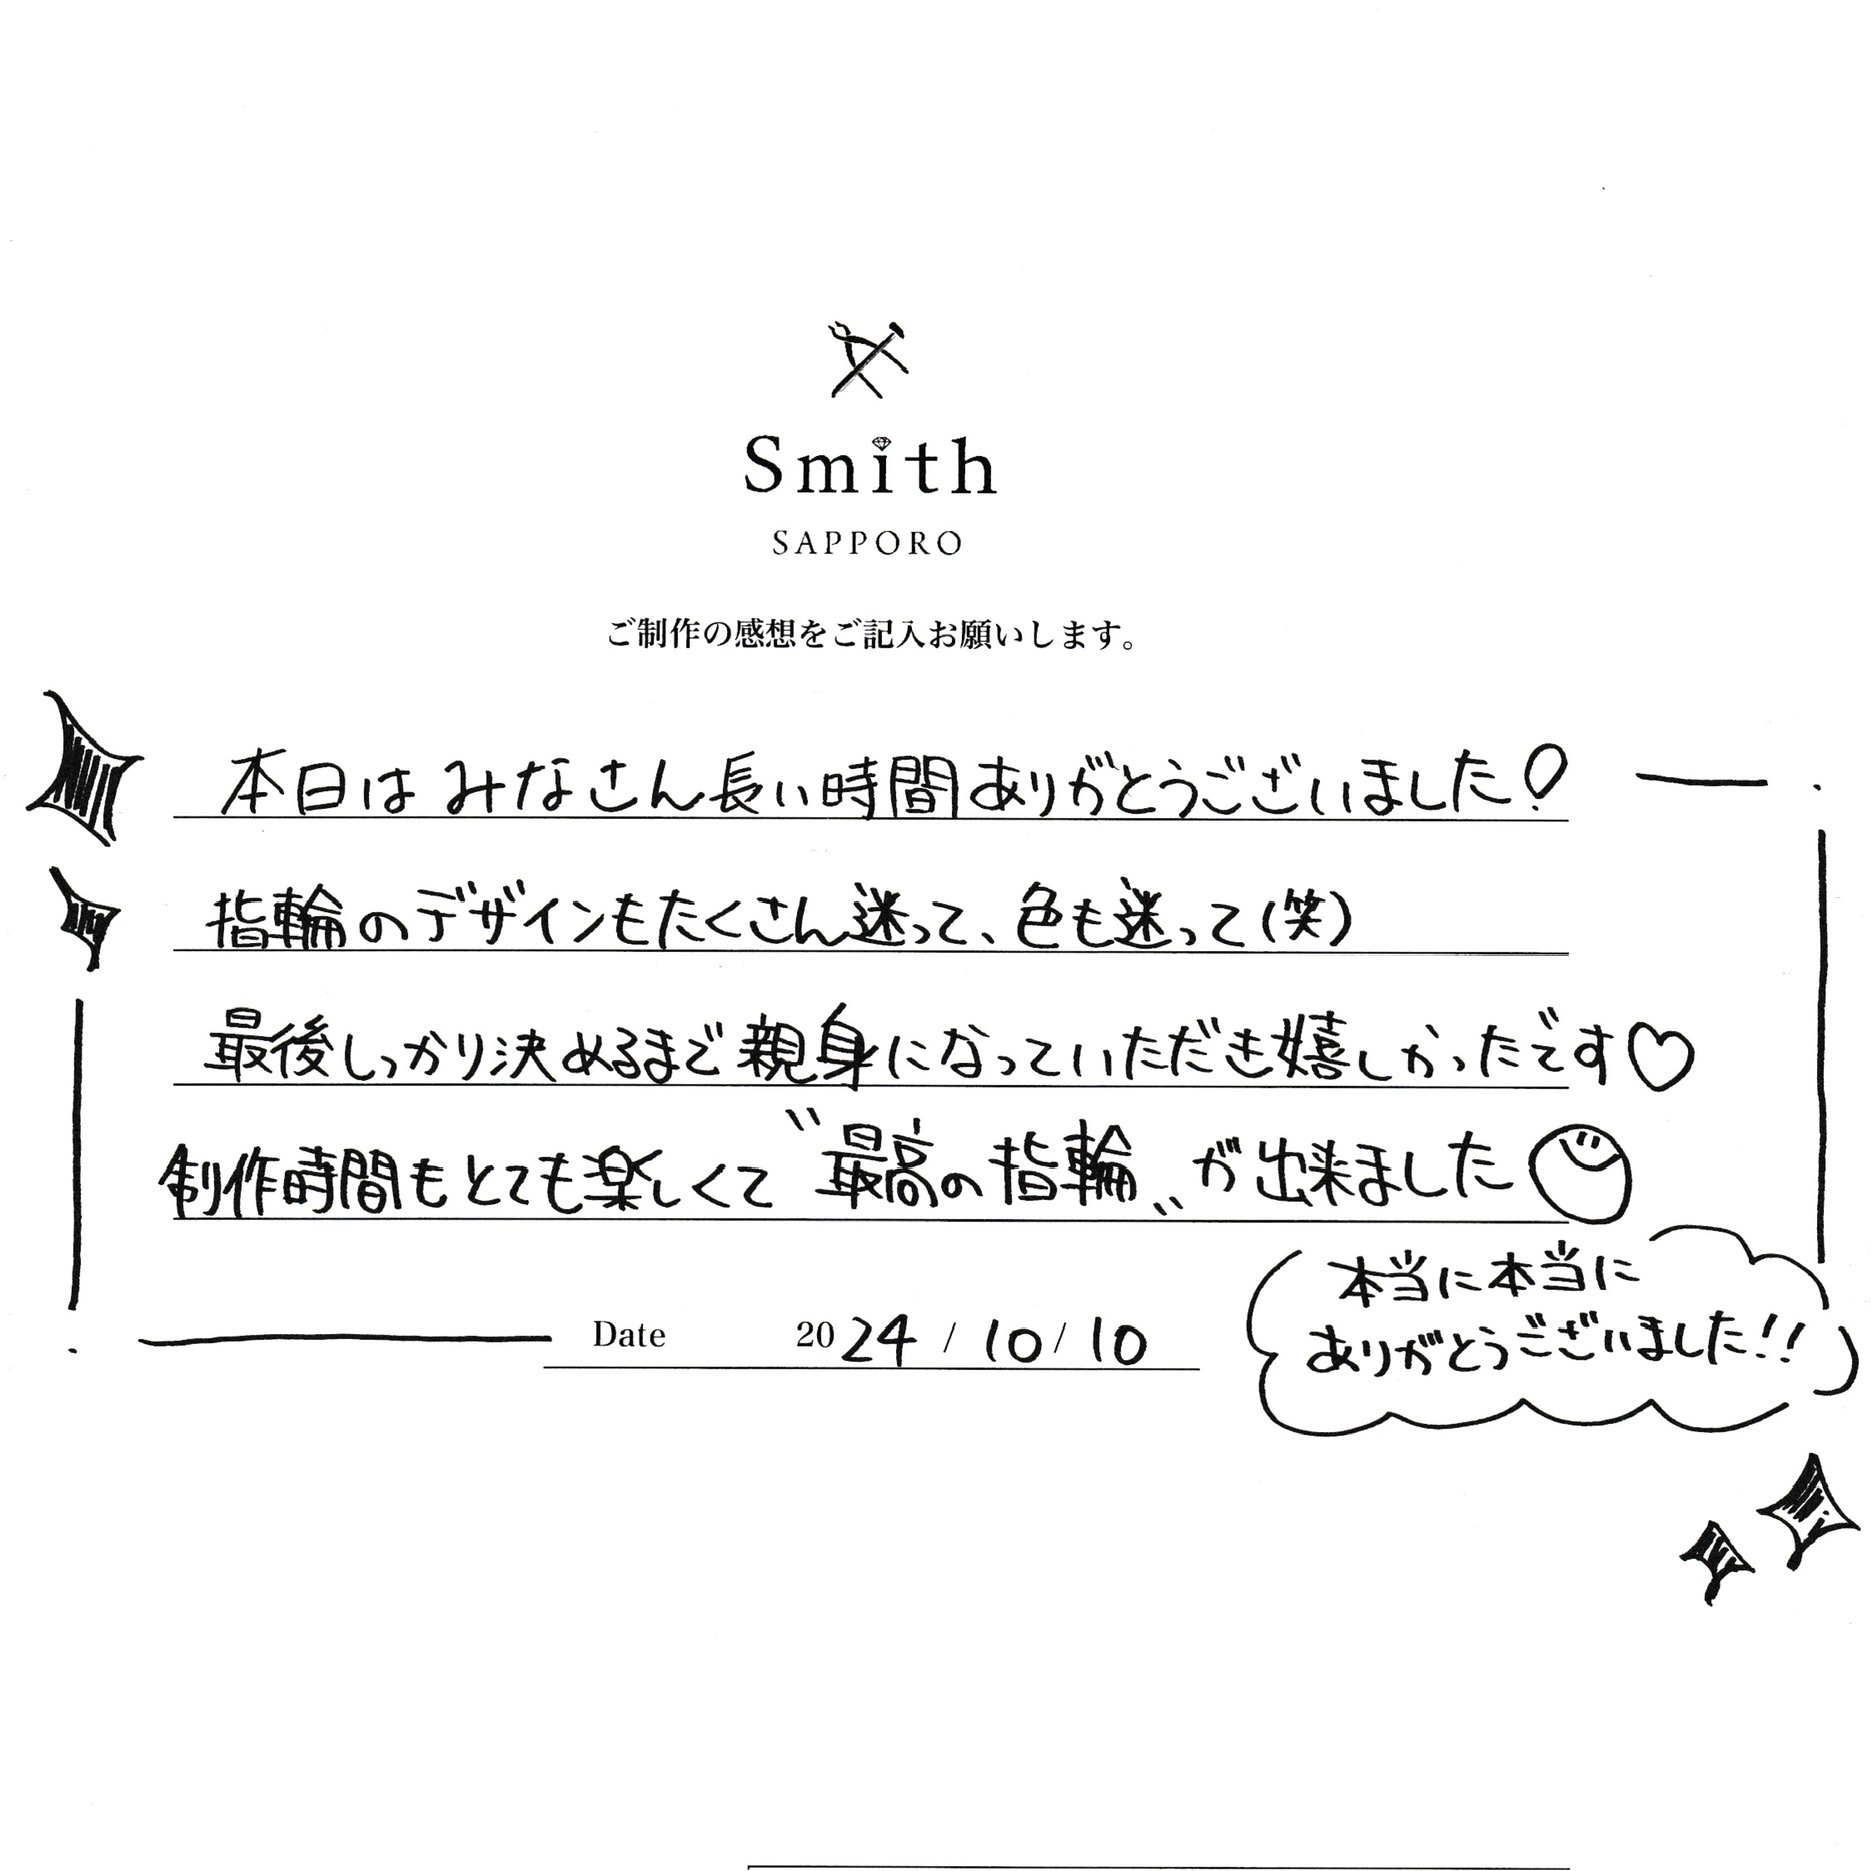 Smith
SAPPORO
ご制作の感想をご記入お願いします。
本日はみなさん長い時間ありがとうございました!
指輪のデザインもたくさん迷って、色も迷って(笑)
最後しっかり決めるまで親身になっていただき嬉しかったです♡
制作時間もとても楽しくて〝最高の指輪〟が出来ました
本当に本当に
ありがとうございました!!
Date 2024/10/10